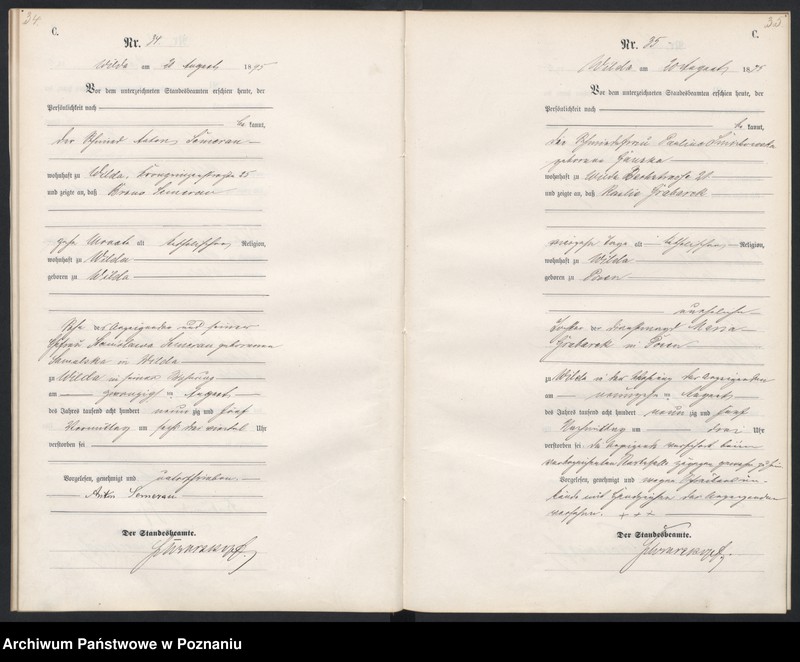 34.
C.
Nr. 34.
Wilda am 20 August 1895
Vor dem unterzeichneten Standesbeamten erschien heute, der
Persönlichkeit nach
be kannt,
der Schmied Anton Semerau
wohnhaft zu Wilda, Kronprinzenstraße 25
und zeigte an, daß Bruno Semerau
Monate alt katholischer Religion,
wohnhaft zu Wilda
geboren zu Wilda
Sohn des Anzeigenden und seiner
Ehefrau Stanislawa Semerau geborenen
in Wilda
zu Wilda in seiner Wohnung
am zwanzigsten August
des Jahres tausend acht hundert neun zig und fünf
Vormittag um sechs drei viertel Uhr
verstorben sei
Vorgelesen, genehmigt und unterschrieben.
Anton Semerau
Der Standesbeamte.
35
C.
Nr. 35
Wilda am 20 August 1895
Vor dem unterzeichneten Standesbeamten erschien heute, der
Persönlichkeit nach
be kannt,
die Schmiedefrau Pauline
geborene
wohnhaft zu Wilda 20
und zeigte an, daß Grabarek
Tage alt katholischer Religion,
wohnhaft zu Wilda
geboren zu Posen
uneheliche
Tochter der Dienstmagd Maria
Grabarek in Posen
zu Wilda in der Wohnung der Anzeigenden
am August
des Jahres tausend acht hundert neun zig und fünf
Nachmittag um drei Uhr
verstorben sei. Die Anzeigende versichert beim
vorbezeichneten Sterbefalle zugegen gewesen zu sein
Vorgelesen, genehmigt und wegen Schreibensun-
kunde mit Handzeichen der Anzeigenden
versehen. + + +
Der Standesbeamte.
Archiwum Państwowe w Poznaniu